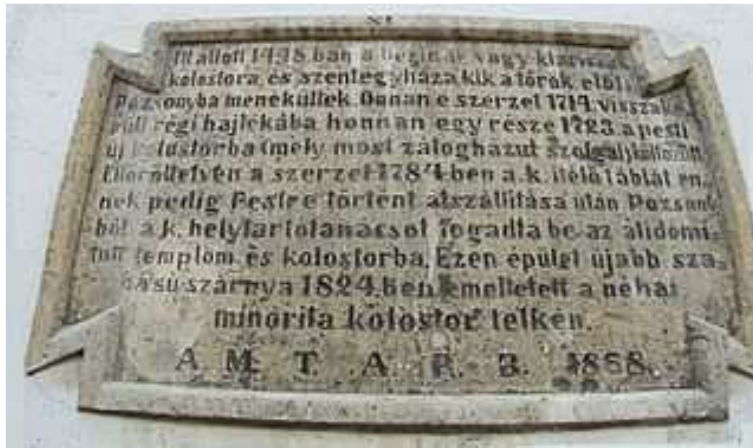 XI.
Itt állott 1498.ban a beginák vagy klarissák
kolostora és szentegyháza kik a török elől
Pozsonyba menekültek. Onnan e szerzet 1714. visszake
rült régi hajlékába honnan egy része 1723. a pesti
új kolostorba (mely most zálogházul szolgál) költözött.
Eltöröltetvén a szerzet 1784 ben a k. ítélő táblát en=
nek pedig Pestre történt átszállítása után Pozsony
ból a k. helytartótanácsot fogadta be az átidomí=
tott templom és kolostorba. Ezen épület újabb sza=
bású szárnya 1824.ben emeltetett a néhai
minorita kolostor telkén.
A M. T. A. R. B. 1888.